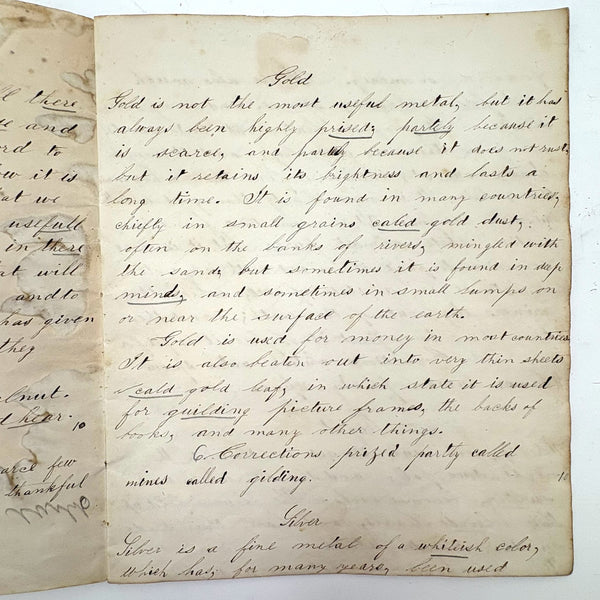 ll there
e and
ord to
ow it is
at we
usefull
in there
at will
and to
has given
they
lnut.
d hear.
10
arce few
thankful
Gold
Gold is not the most useful metal, but it has
always been highly prised; partely because it
is scarce, and partly because it does not rust,
but it retains its brightness and lasts a
long time. It is found in many countries,
chiefly in small grains caled gold dust,
often on the banks of rivers, mingled with
the sand, but sometimes it is found in deep
minds, and sometimes in small lumps on
or near the surface of the earth.
Gold is used for money in most countries
It is also beaten out into very thin sheets
cald gold leaf, in which state it is used
for guilding picture frames, the backs of
books, and many other things.
6 Corrections prized partly called
mines called gilding.
10
Silver
Silver is a fine metal of a whiteish color,
which has, for many years, been used